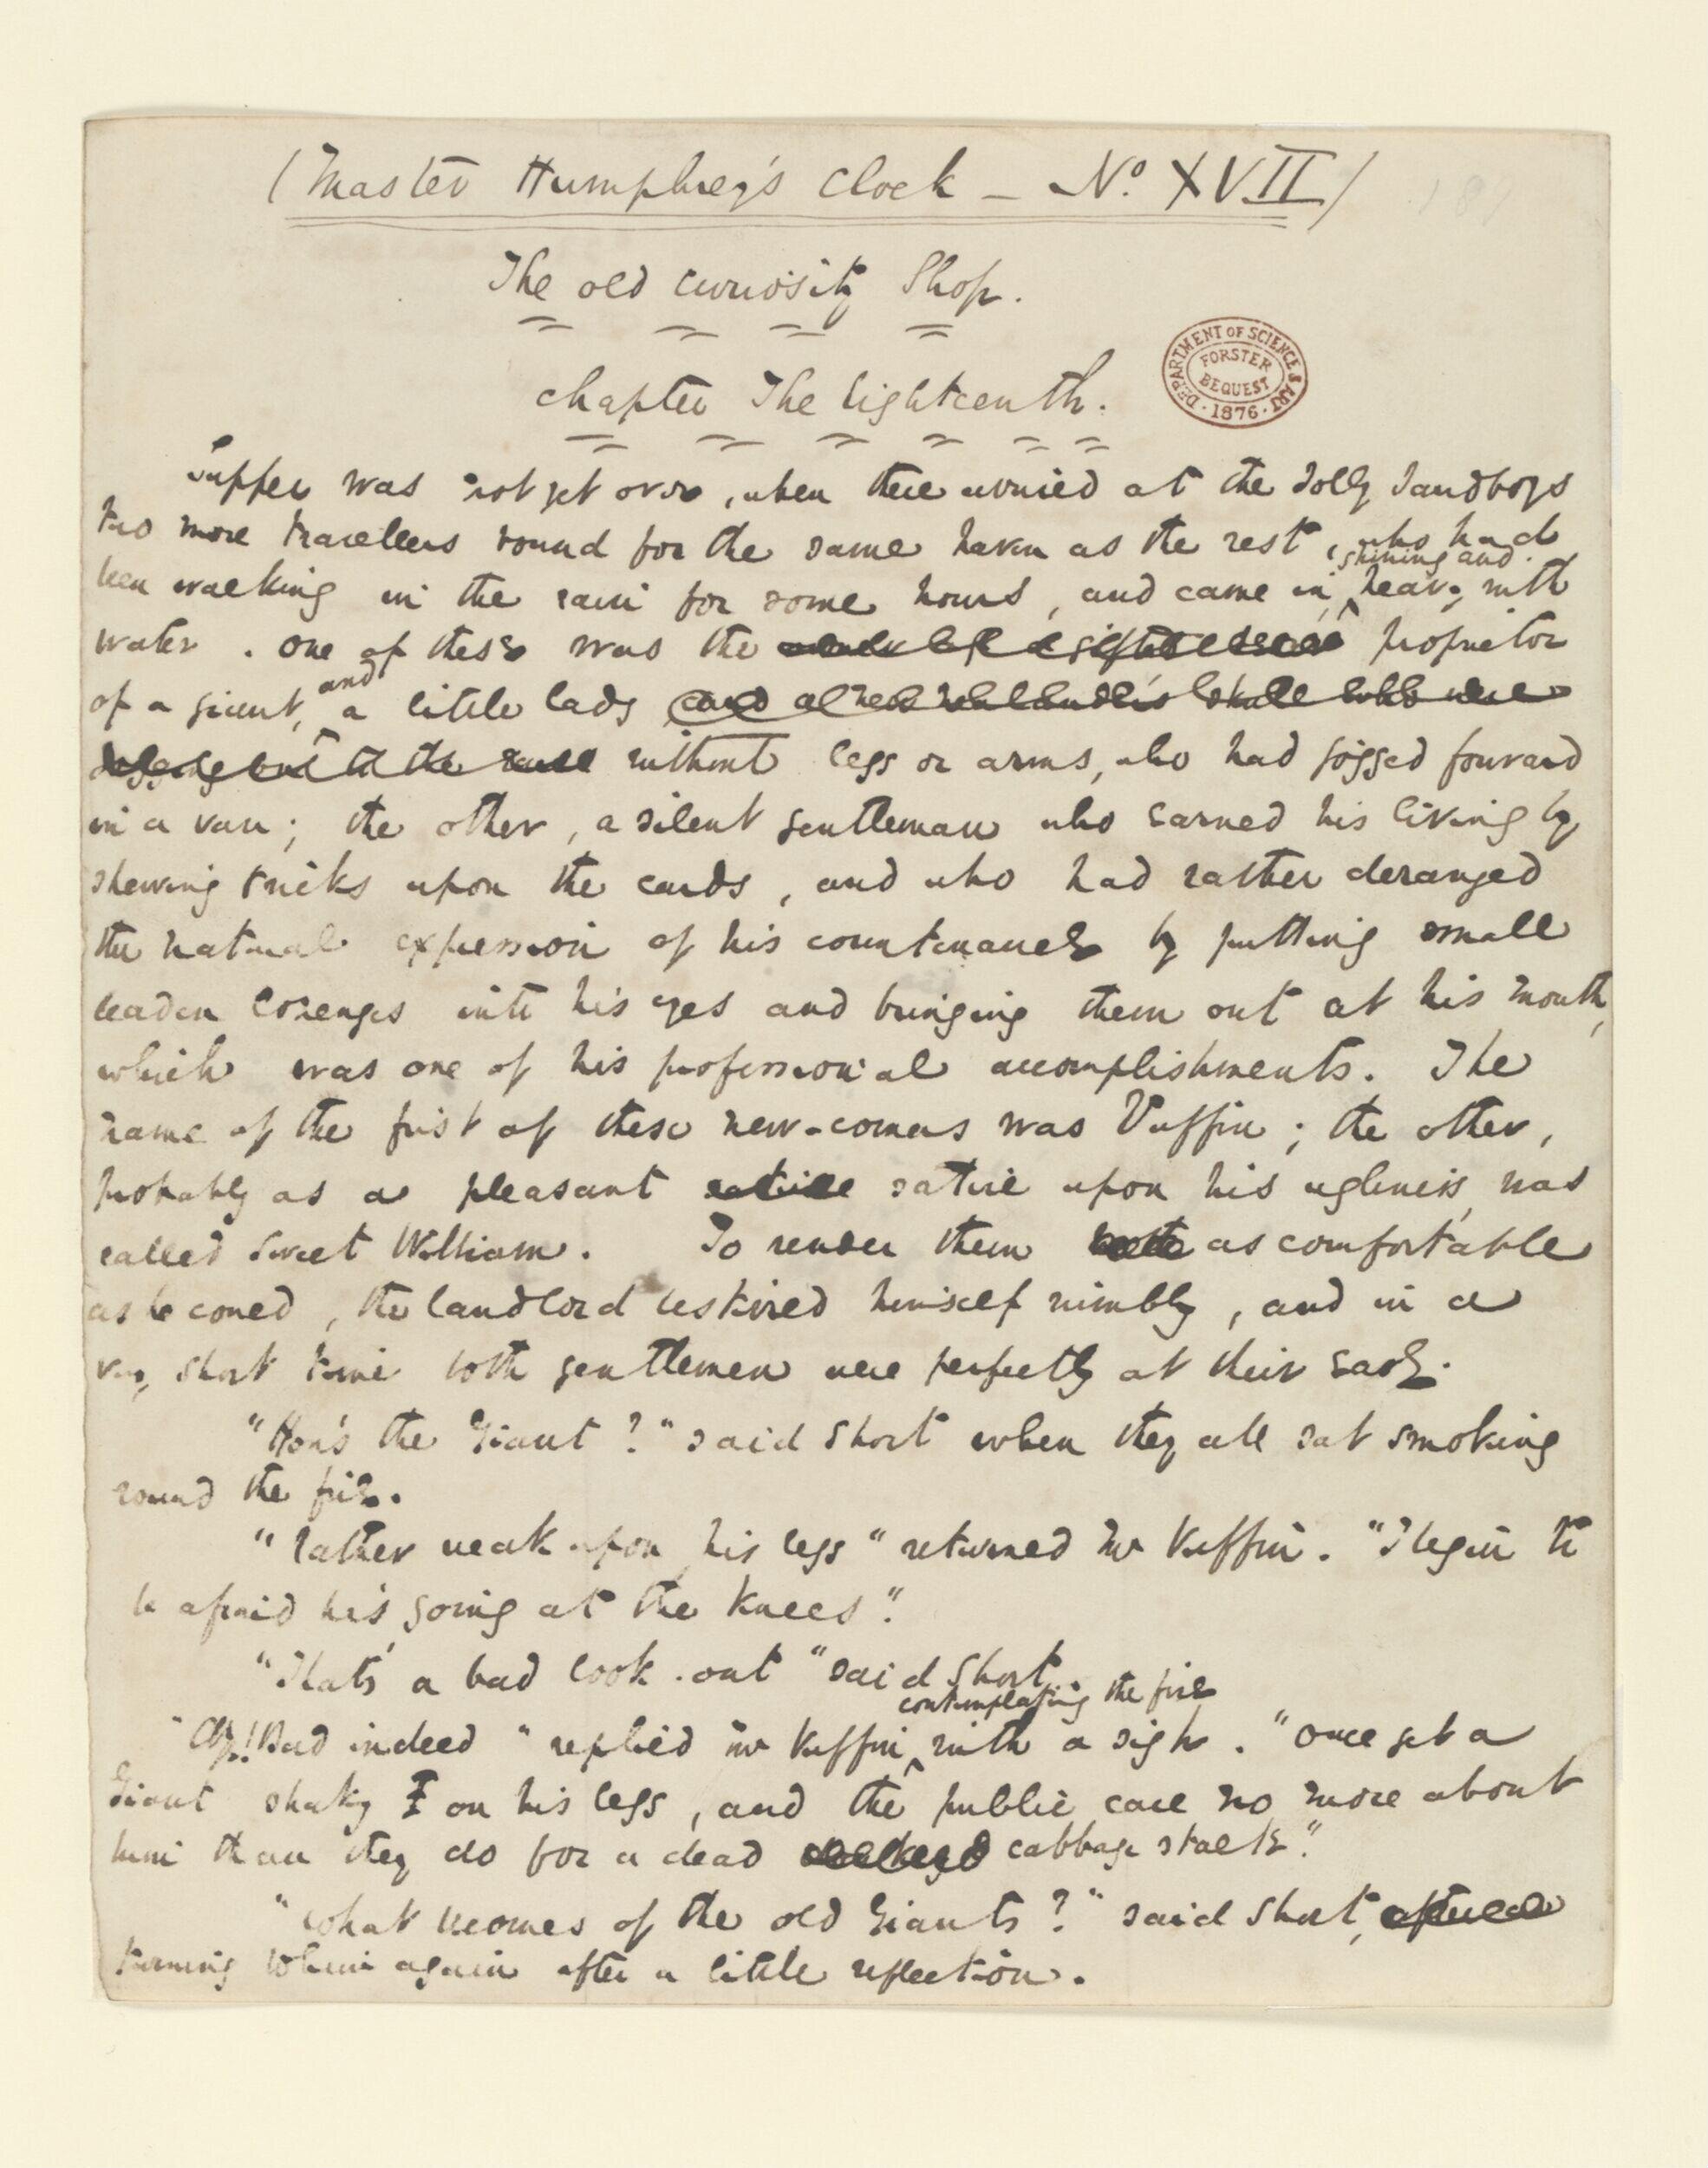 (Master Humphrey's Clock — No. XVII)
The old Curiosity Shop.
DEPARTMENT OF SCIENCE & ART
FORSTER
BEQUEST
1876
Chapter The Eighteenth.
Supper was not yet over, when there arrived at the Jolly Sandboys
two more travellers bound for the same haven as the rest, who had
shining and
been walking in the rain for some hours, and came in heavy with
water. One of these was the proprietor
and
of a giant, a little lady
without legs or arms, who had jogged forward
in a van; the other, a silent gentleman who earned his living by
shewing tricks upon the cards, and who had rather deranged
the natural expression of his countenance by putting small
leaden lozenges into his eyes and bringing them out at his mouth,
which was one of his professional accomplishments. The
name of the first of these new-comers was Vuffin; the other,
probably as a pleasant satire upon his ugliness, was
called Sweet William. To render them as comfortable
as he coued, the landlord bestirred himself nimbly, and in a
very short time both gentlemen were perfectly at their ease.
"How's the Giant?" said Short when they all sat smoking
round the fire.
"Rather weak upon his legs" returned Mr Vuffin. "I begin to
be afraid he's going at the knees".
"That's a bad look-out" said Short.
contemplating the fire
"Ay! Bad indeed" replied Mr Vuffin, with a sigh. "Once get a
Giant shaky on his legs, and the public care no more about
him than they do for a dead cabbage stalk".
"What becomes of the old Giants?" said Short,
turning to him again after a little reflection.